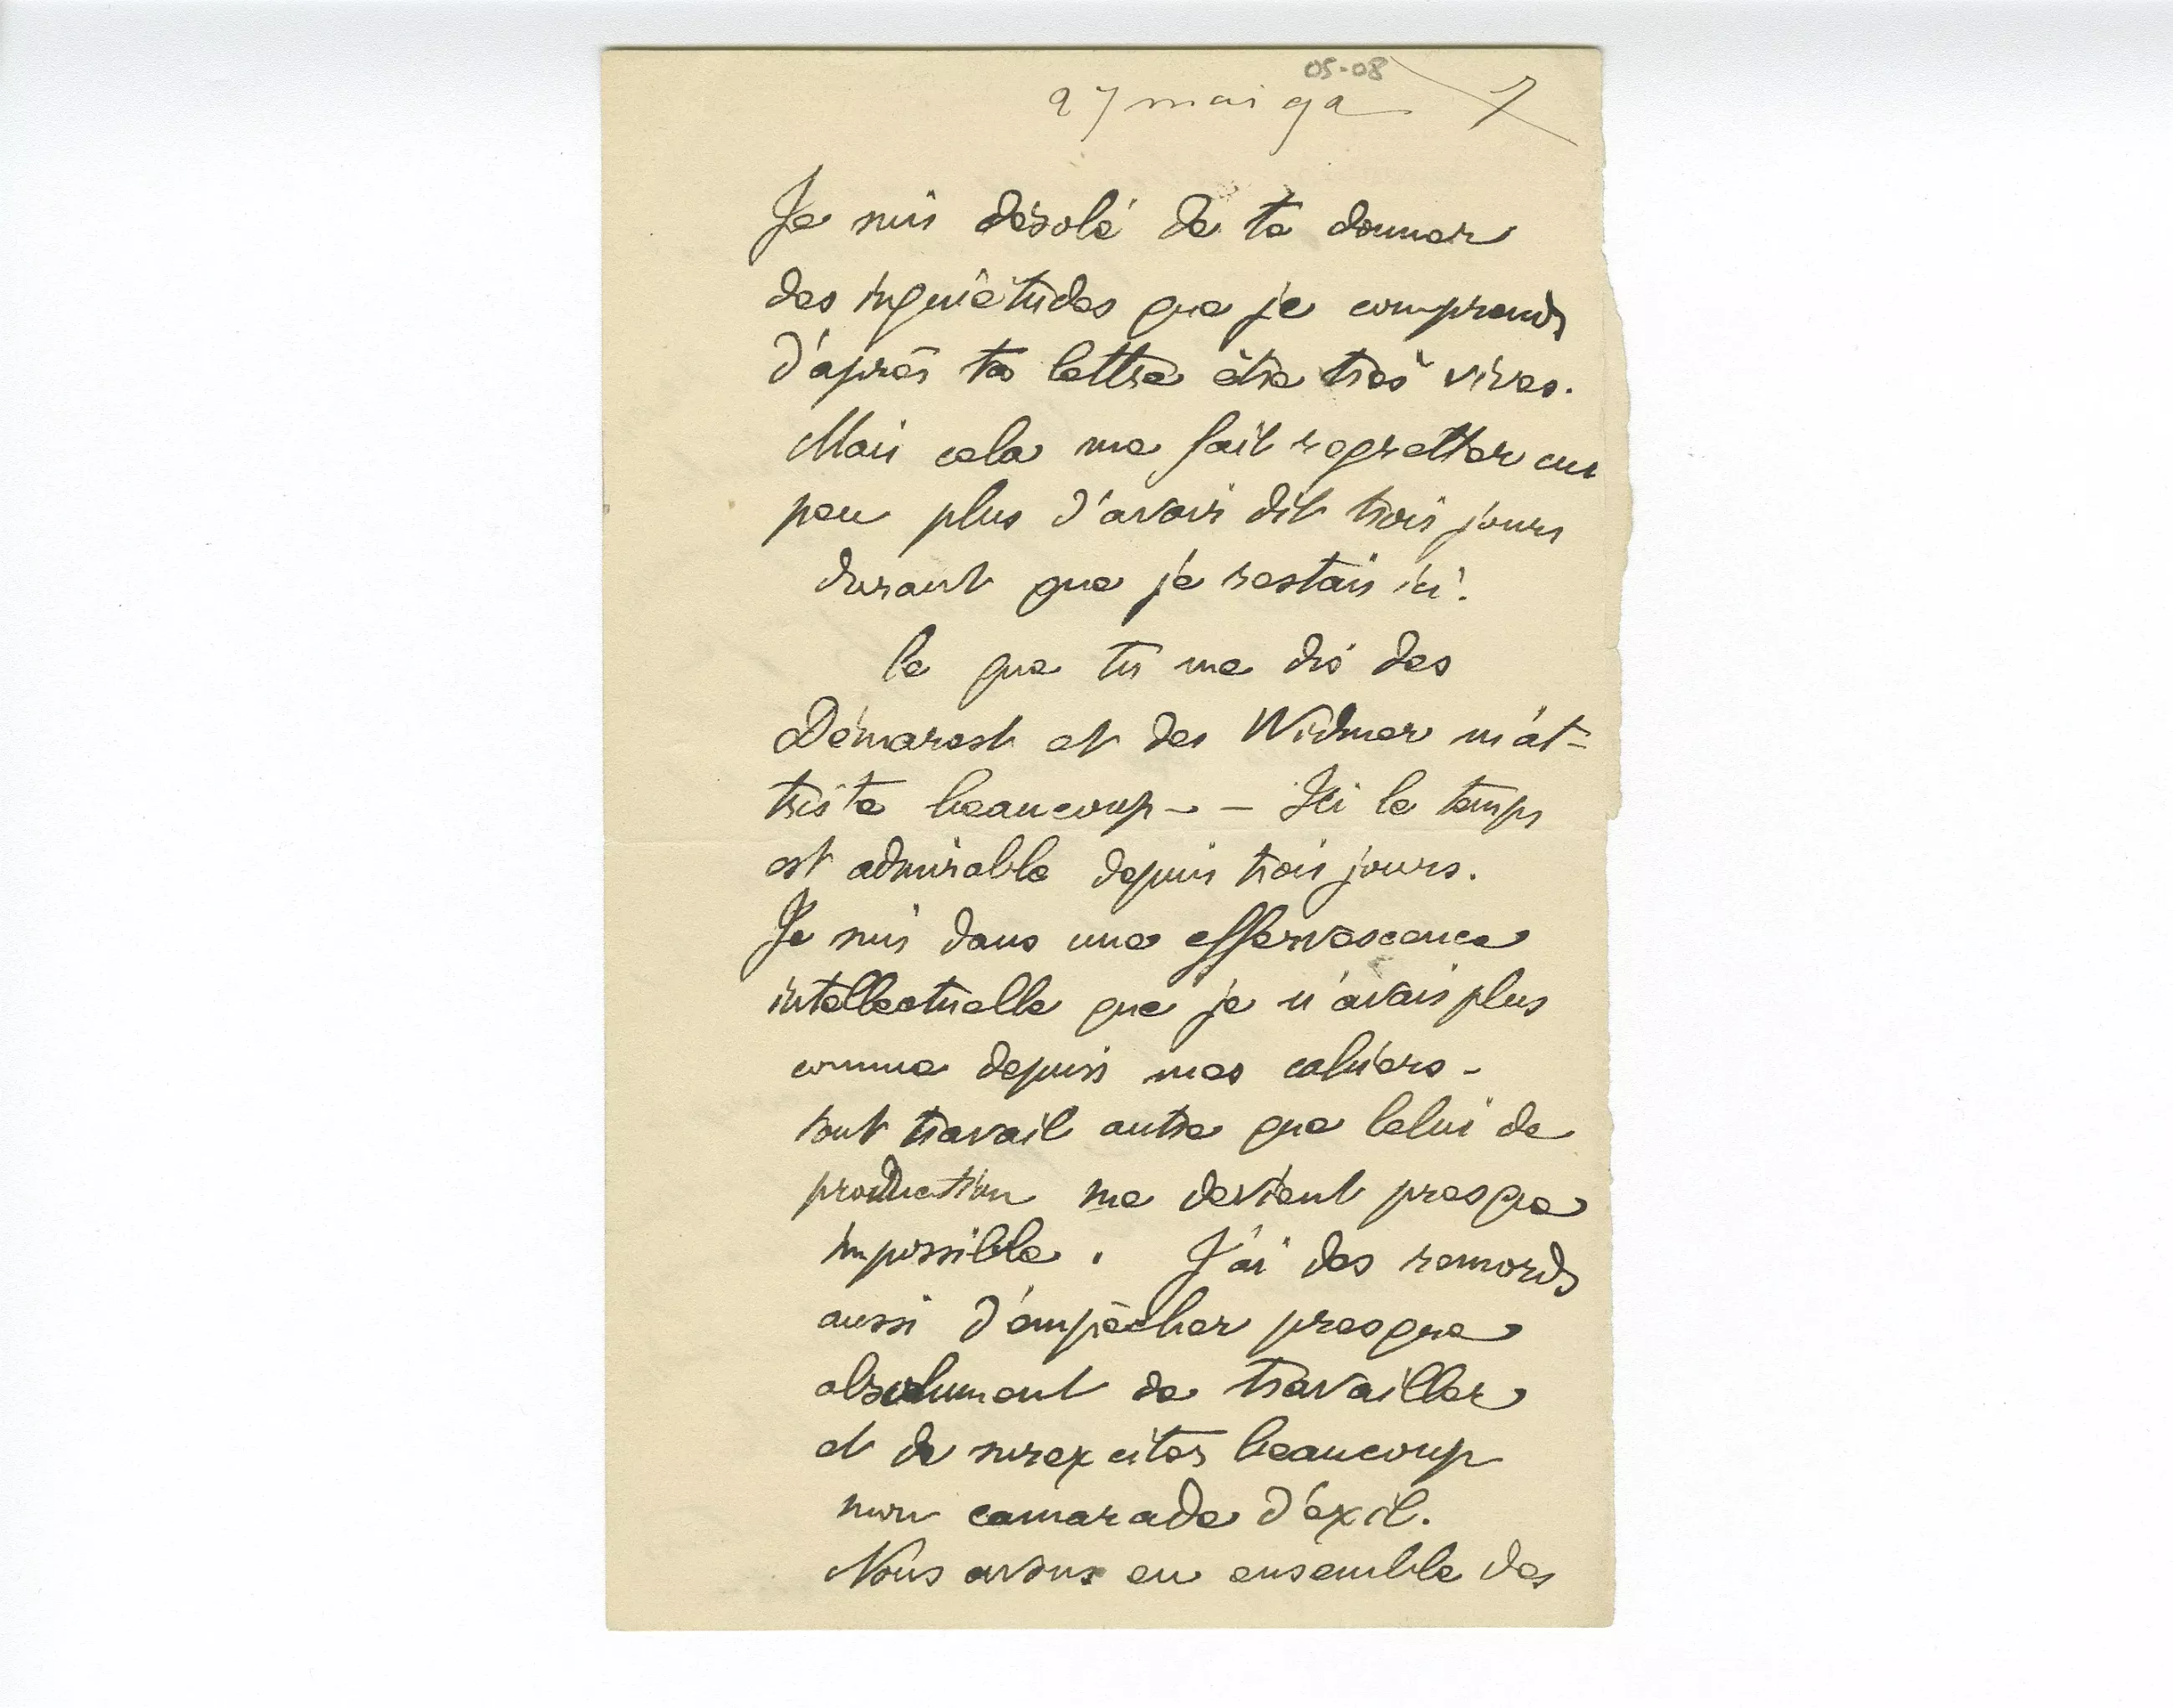 05-08
27 mai 92
Je suis désolé de te donner
des inquiétudes que je comprends
d'après ta lettre être très vives.
Mais cela me fait regretter un
peu plus d'avoir dit trois jours
durant que je restais ici.
Ce que tu me dis des
Démarest et des Widmer m'at-
triste beaucoup - - Ici le temps
est admirable depuis trois jours.
Je suis dans une effervescence
intellectuelle que je n'avais plus
connue depuis mes cahiers -
tout travail autre que celui de
production me devient presque
impossible. J'ai des remords
aussi d'empêcher presque
absolument de travailler
et de surexciter beaucoup
mon camarade d'exil.
Nous avons eu ensemble des